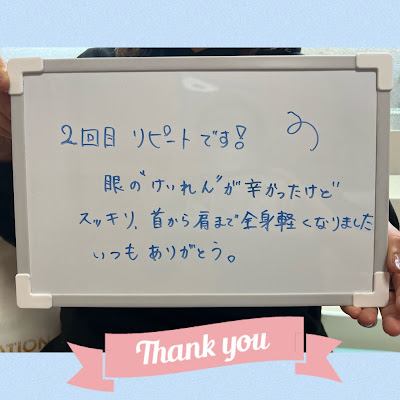 2回目 リピートです!
眼の"けいれん"が辛かったけど
スッキリ、首から肩まで全身軽くなりました
いつもありがとう。
Thank you